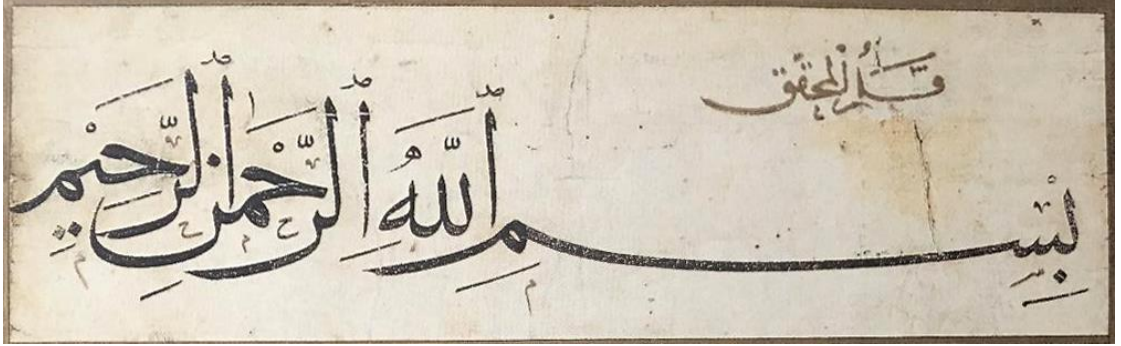 قلم المحقق
بِسْمِ اللَّهِ الرَّحْمَنِ الرَّحِيمِ